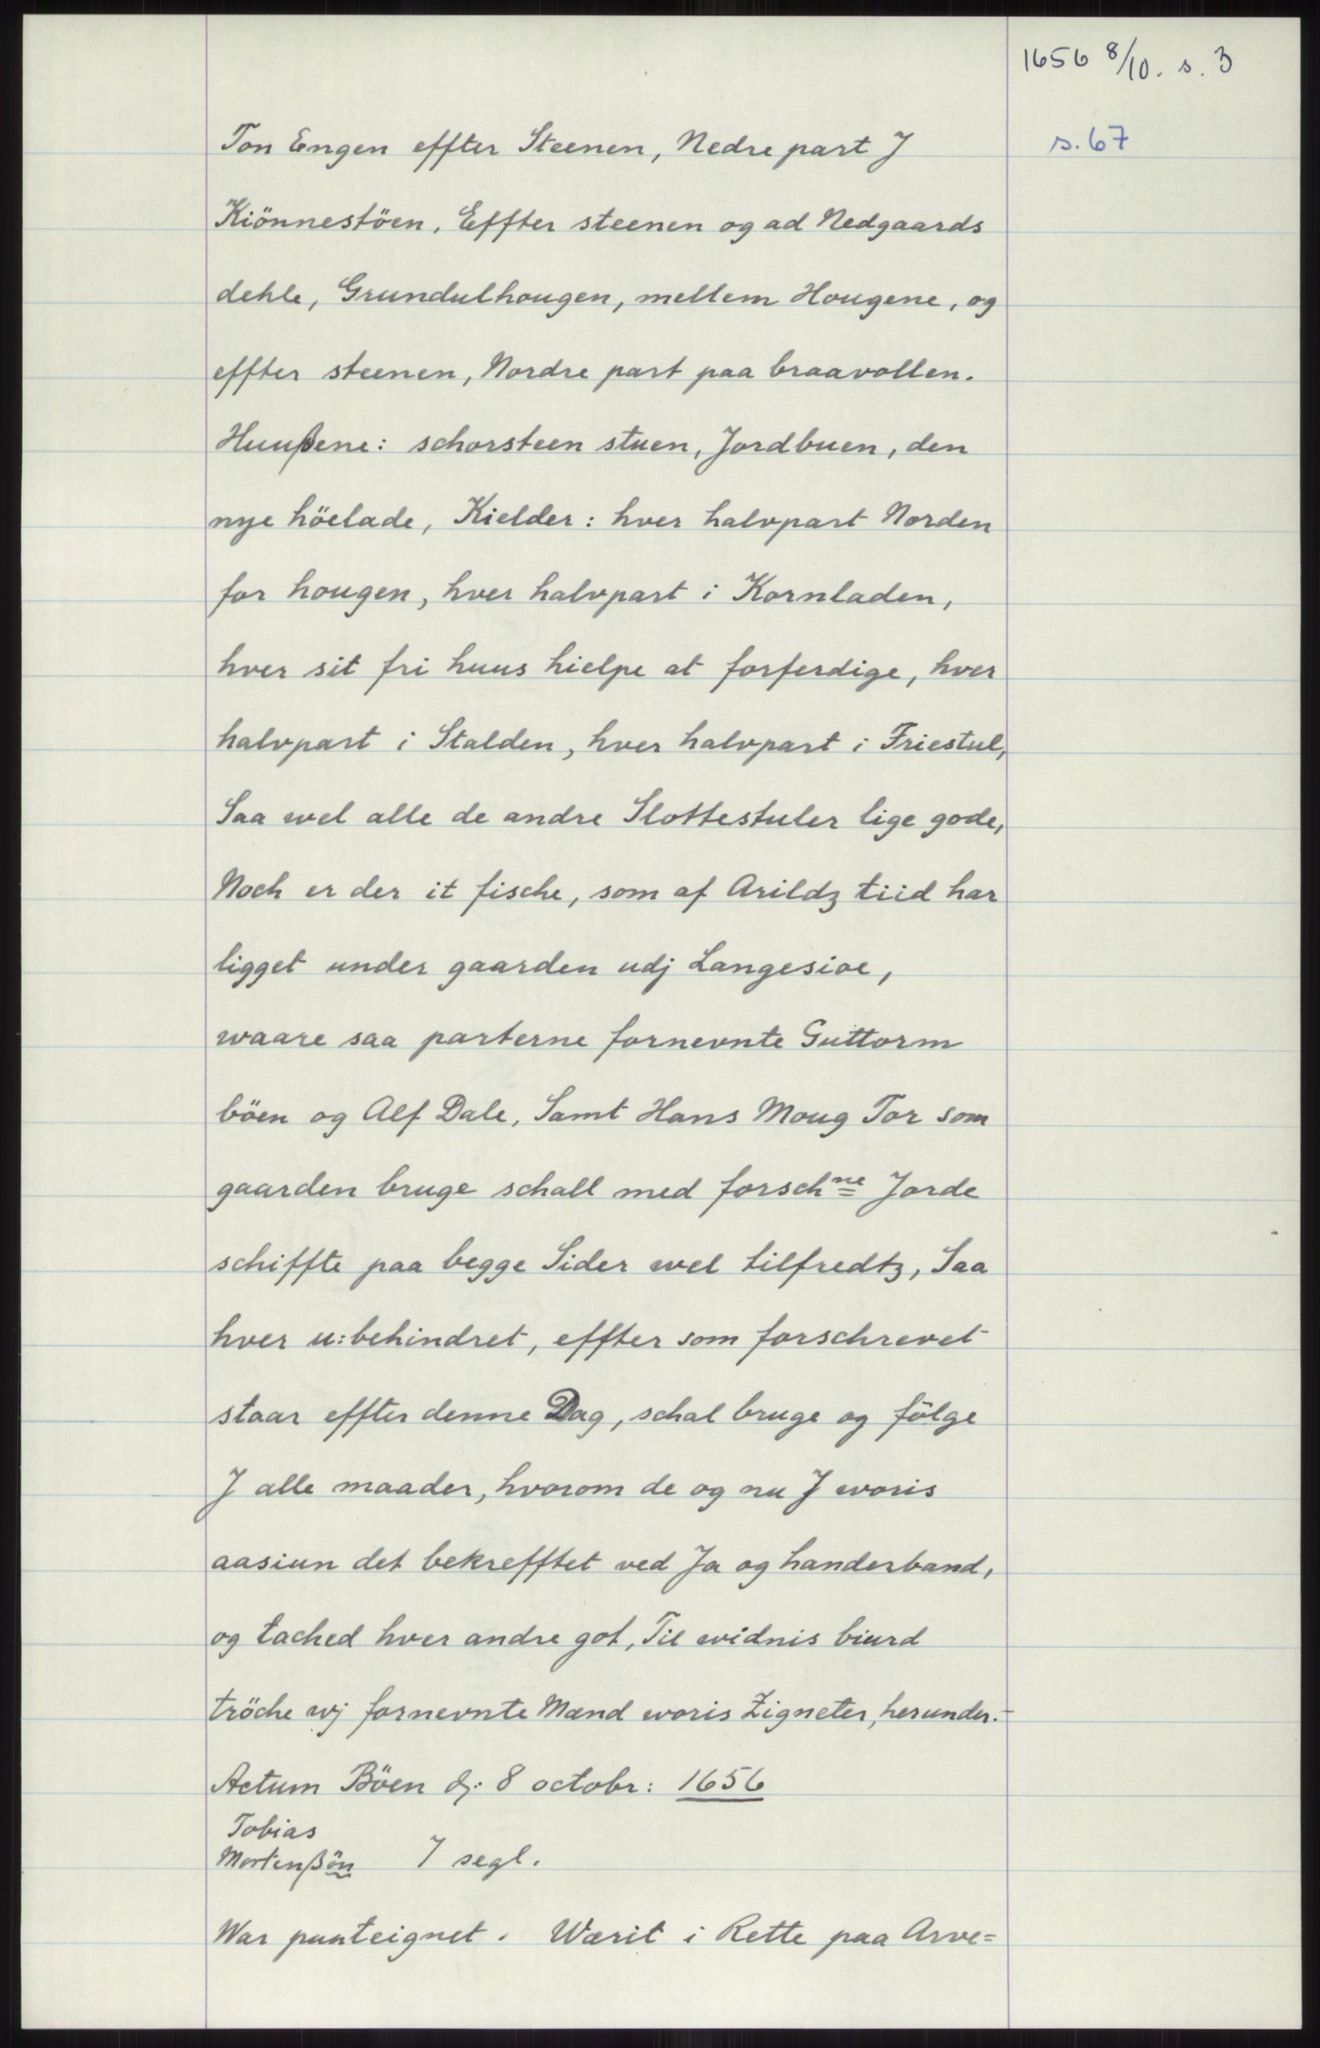 1656 8/10. s. 3
s. 67
Ton Engen effter Steenen, Nedre part J
Kiönnestöen, Effter steenen og ad Nedgaards
dehle, Grundulhougen, mellem Hougene, og
effter steenen, Nordre part paa braavollen.
Huußene: schorsteen stuen, Jordbuen, den
nye höelade, Kielder: hver halvpart Norden
for hougen, hver halvpart i Kornladen,
hver sit fri huus hielpe at forferdige, hver
halvpart i Stalden, hver halvpart i Friestul,
Saa wel alle de andre Slottestuler lige gode,
Noch er der it fische, som af Arildz tiid har
ligget under gaarden udj Langesioe,
waare saa parterne fornevnte Guttorm
böen og Alf Dale, Samt Hans Moug Tor som
gaarden bruge schall med forschne Jorde
schiffte paa begge Sider wel tilfredtz, Saa
hver u:behindret, effter som forschrevet
staar effter denne Dag, schal bruge og fölge
J alle maader, hvorom de og nu J woris
aasiun det bekrefftet ved Ja og handerband,
og tached hver andre got, Til widnis biurd
tröche wj fornevnte Mænd woris Zigneter, herunder.-
Actum Böen dj: 8 octobr: 1656
Tobias
Mortenßön 7 segl.
War paateignet. Wærit i Rette paa Arve=